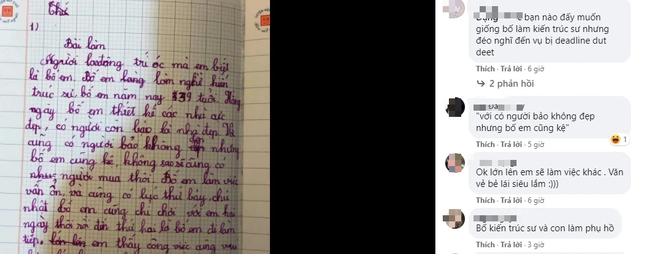 Thứ
1)
Bài làm
Người lao động trí óc mà em biết
là bố em. Bố em đang làm nghề kiến
trúc sư, bố em năm nay 39 tuổi. Hằng
ngày bố em thiết kế các nhà cực
đẹp, có người còn bảo là nhà đẹp. Và
cũng có người bảo không đẹp nhưng
bố em cũng kệ, không sao vì cũng có
nhiều người mua thôi. Bố em làm việc
vẫn ổn, và cũng có lúc thứ bảy chủ
nhật bố em cũng chỉ chơi với em hai
ngày thôi rồi đến thứ hai là bố em đi làm
tiếp. em thấy công việc cũng
bạn nào đấy muốn
giống bố làm kiến trúc sư nhưng
đéo nghĩ đến vụ bị deadline dut
deet
Thích · Trả lời · 6 giờ
2 phản hồi
"với có người bảo không đẹp
nhưng bố em cũng kệ"
Thích · Trả lời · 5 giờ
1
Ok lớn lên em sẽ làm việc khác . Văn
vẻ bẻ lái siêu lắm :)))
Thích · Trả lời · 6 giờ
Bố kiến trúc sư và con làm phụ hồ
Thích · Trả lời · 3 giờ